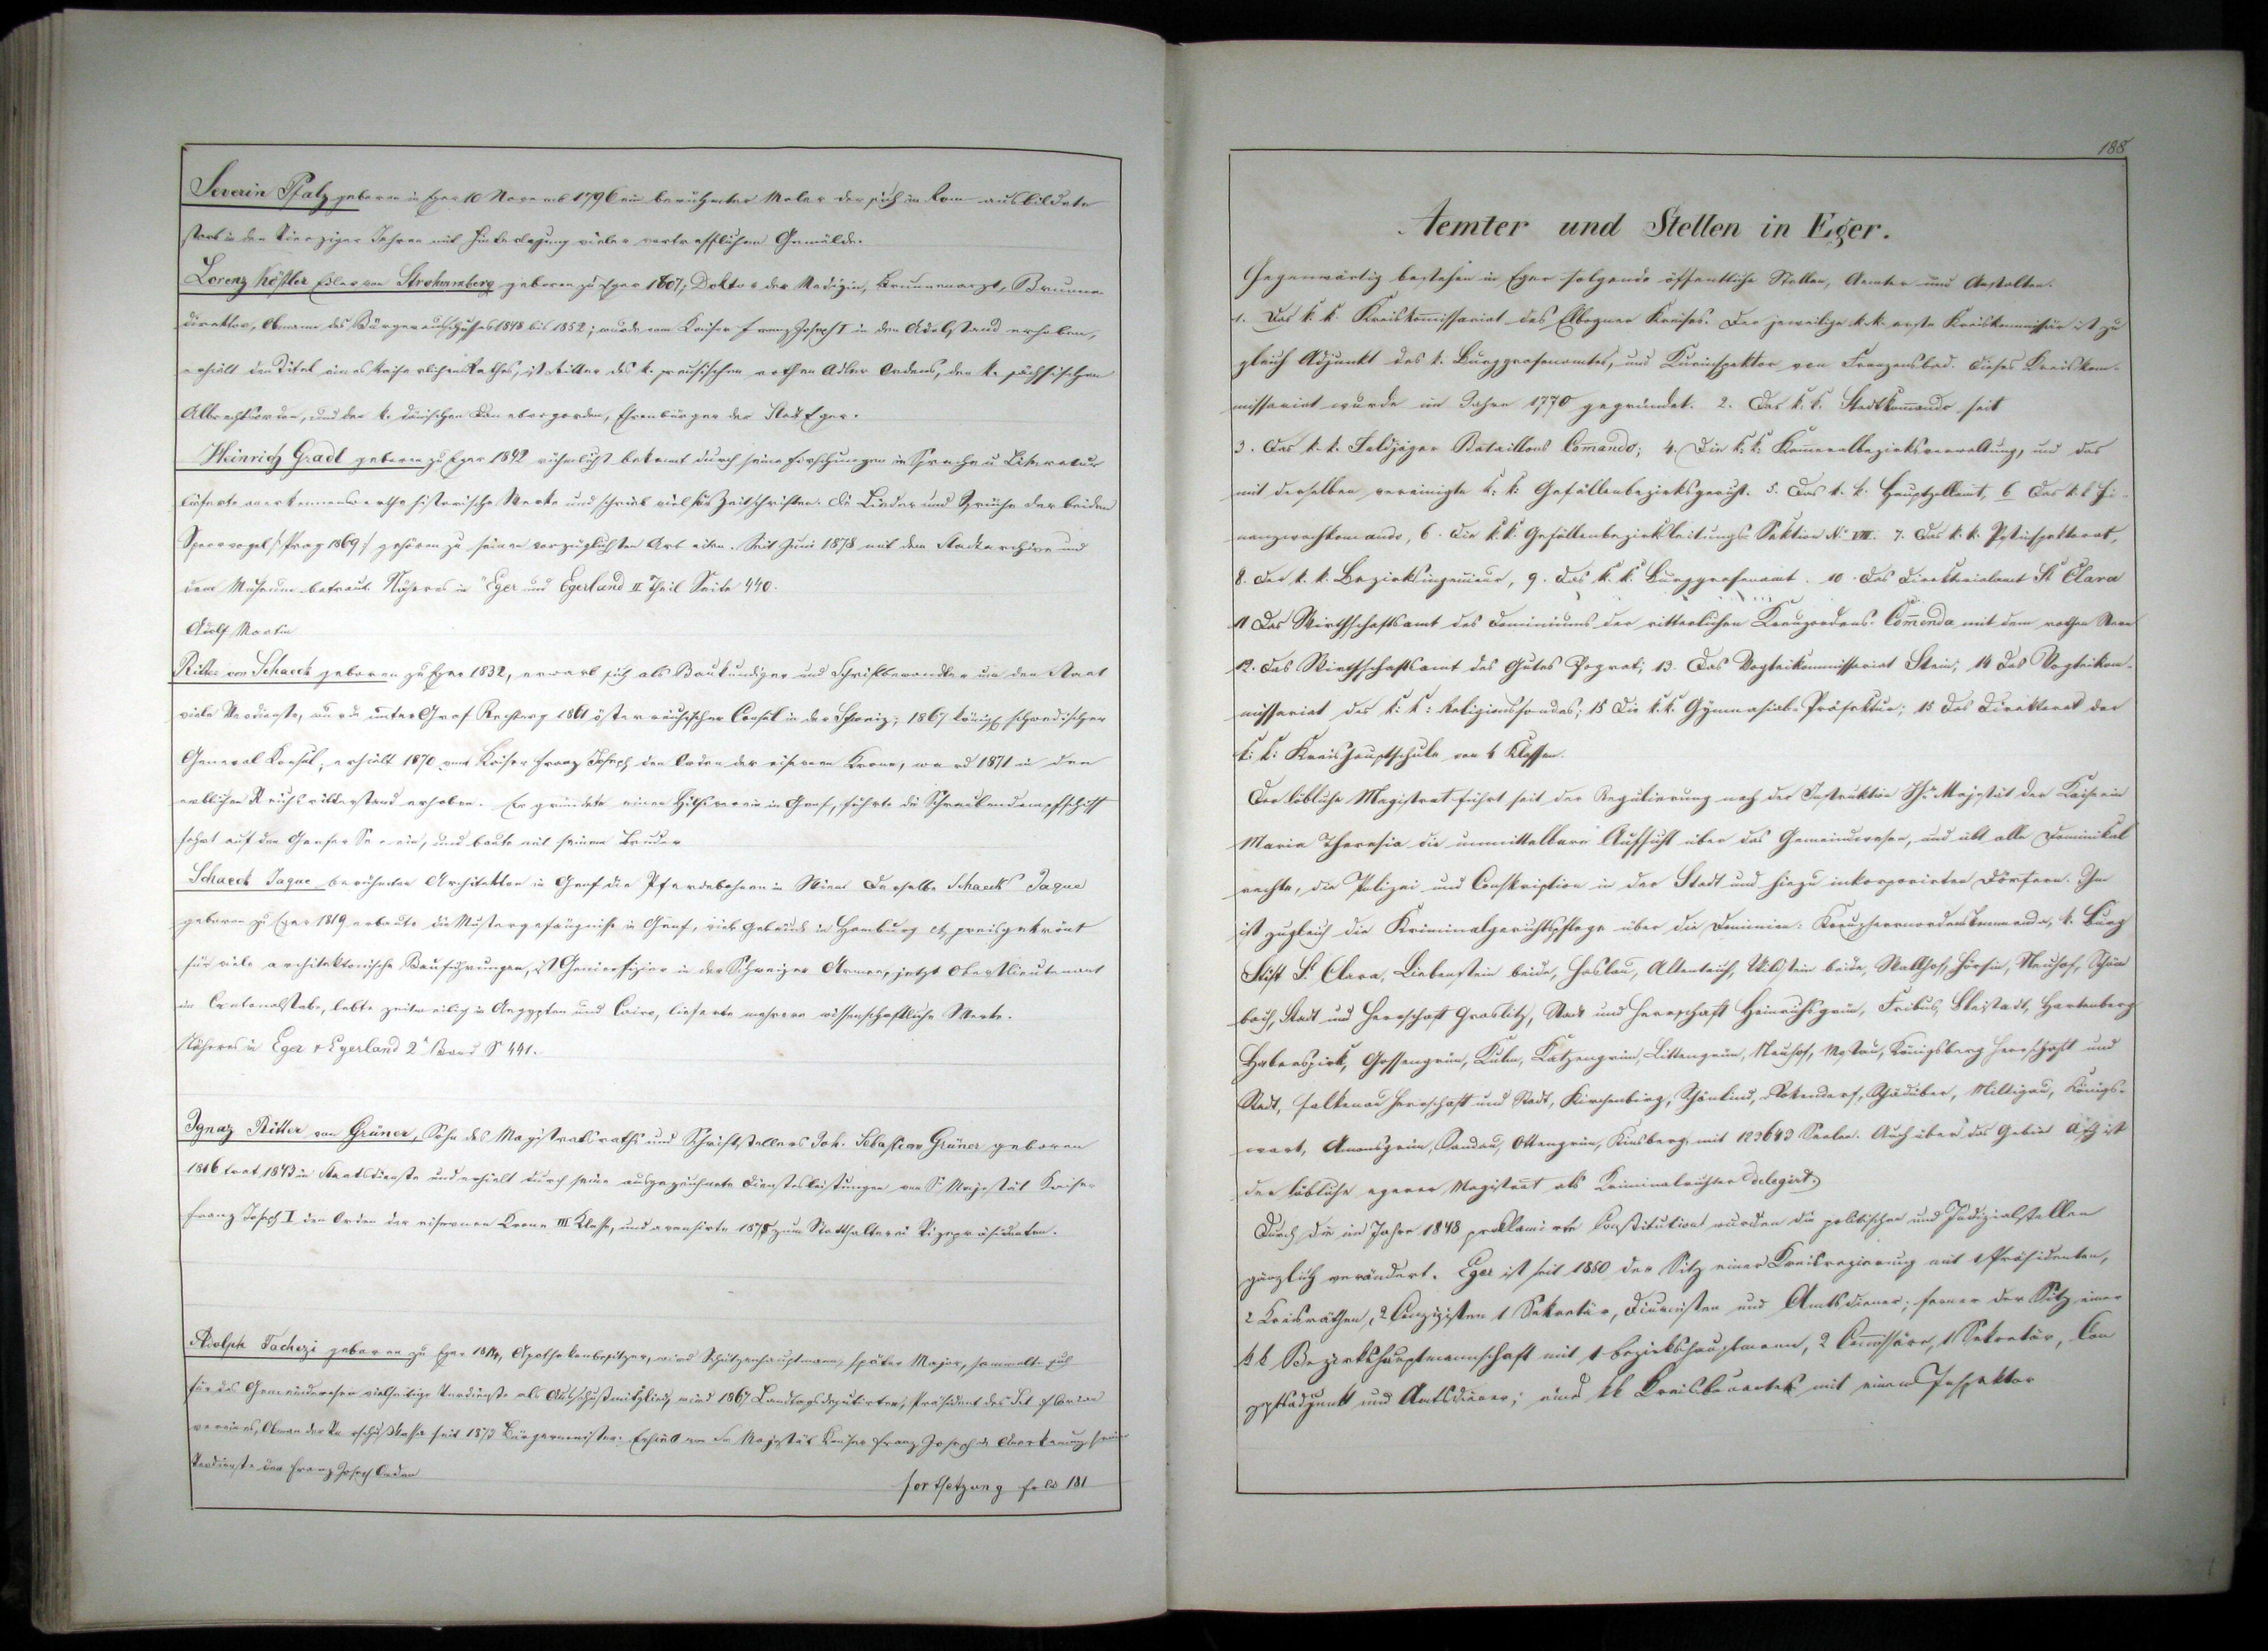 Severin Pfalz geboren in Eger 10 Novemb 1796 ein berühmter Maler der sich in Rom ausbildete
starb in den Vierziger Jahren mit Hinterlassung vieler vortrefflichen Gemälde.
Lorenz Köstler Edler von Strohmmberg geboren zu Eger 1807, Doktor der Medizin, Brunnenarzt, Brunnen
direktor, Obmann des Bürgerausschusses 1848 bis 1852; wurde vom Kaiser Franz Joseph I in den Adelstand erhoben,
erhielt den Titel eines kaiserlichen Rathes, ist Ritter des k. preusischen rothen Adler Ordens, des k. sächsischen
Albrechtsorden, und des k. dänischen Danebrogorden, Ehrenbürger der Stadt Eger.
Heinrich Gradl geboren zu Eger 1842 rühmlichst bekannt durch seine Forschungen in Sprache u Literatur
lieferte anerkennenswerthe historische Werke und schrieb viel für Zeitschriften. Die Lieder und Sprüche der beiden
Spervogel /: Prag 1869 :/ gehören zu seinen vorzüglichsten Arbeiten. Seit Juni 1878 mit dem Stadtarchive und
dem Museum betraut. Näheres in "Eger und Egerland II Theil Seite 440.
Adolf Martin
Ritter von Schaeck geboren zu Eger 1832, erwarb sich als Baukundiger und Schriftbewandter um den Staat
viele Verdienste, wurde unter Graf Rechberg 1861 österreichischer Consul in der Schweiz; 1867 königl schwedischer
General Konsul, erhielt 1870 vom Kaiser Franz Joseph den Orden der eisernen Krone, ward 1871 in den
erblichen Reichsritterstand erhoben. Er gründete einen Hilfsverein in Genf, führte die Schraubendampfschiff
fahrt auf dem Genfer See ein, und baute mit seinem Bruder
Schaeck Jaque berühmter Architekten in Genf die Pferdebahnen in Wien. Derselbe Schaeck Jaque
geboren zu Eger 1819 erbaute die Mustergefängnisse in Genf, viele Gebäude in Hamburg etc preisgekrönt
für viele architektonische Bauführungen, ist Genieoffizier in der Schweizer Armee, jetzt Oberstlieutenant
im Cantonalstabe, lebte zeitweilig in Aegypten und Cairo, lieferte mehrere wissenschaftliche Werke.
Näheres in Eger & Egerland 2r Band S 441.
Ignaz Ritter von Grüner, Sohn des Magistratsraths und Schriftstellers Joh. Sebastian Grüner geboren
1816 trat 1843 in Staatsdienste und erhielt durch seine ausgezeichnete Dienstesleistungen von Sr Majestät Kaiser
Franz Joseph I den Orden der eisernen Krone III Klasse, und avansirte 1878 zum Statthalterei Vizepräsidenten.
Adolph Tachezi geboren zu Eger 1814, Apothekenbesitzer, wird Schützenhauptmann, später Major, sammelte sich
für das Gemeindewesen vielseitige Verdienste als Ausschußmitglied, wird 1867 Landtagsdeputirter, Präsident des
vereines, Obman der Vorschußkassa seit 1873 Bürgermeister. Erhielt von Sr Majestät Kaiser Franz Joseph in Anerkennung seiner
Verdienste den Franz Joseph Orden
Fortsetzung Folio 181
188
Aemter und Stellen in Eger.
Gegenwärtig bestehen in Eger folgende öffentliche Stellen, Aemter und Anstalten.
1. Das k. k. Kreiskom̅issariat des Elbogner Kreises. Der jeweilige k. k. erste Kreiskommissär ist zu
gleich Adjunkt des k. Burggrafenamtes, und Kurinspektor von Franzensbad. Dieses Kreiskom-
missariat wurde im Jahre 1770 gegründet. 2. Das k. k. Stadtkom̅ando seit
3. Das k. k. Feldjäger Bataillons Com̅ando; 4. Die k: k: Kam̅eralbezirksverwaltung, und das
mit derselben vereinigte k: k: Gefällenbezirksgericht. 5. Das k. k. Hauptzollamt, 6 Das k. k Fi-
nanzwachkomando, 6. Die k. k. Gefällenbezirksleitungs-Sektion No VIII. 7. Das k. k. Postinspektorat,
8. Der k. k. Bezirksingenieur, 9. Das k. k. Burggrafenamt. 10. Das Direktorialamt St Clara
11 Das Wirthschaftsamt des Dominiums der ritterlichen Kreuzordens-Com̅enda mit dem rothen Stern
12. Das Wirthschaftsamt des Gutes Pograt; 13. Das Vogteikommissariat Stein; 14 Das Vogteikom-
missariat des k: k: Religionsfondes; 15 Die k. k. Gymnasial-Präfektur; 15 Das Direktorat der
k: k: Kreishauptschule von 4 Klassen.
Der löbliche Magistrat führt seit der Regulierung nach der Instruktion Ihr Majestät der Kaiserin
Maria Theresia die unmittelbare Aufsicht über das Gemeindewesen, und übt alle Dominikal
rechte, die Polizei und Conskription in der Stadt und hiezu inkorporirten Dörfern. Ihm
ist zugleich die Kriminalgerichtspflege über die Dominien: Kreuzherrnordens Kommenda, k. Burg
Stift St Clara, Liebenstein beide, Haslau, Altenteich, Wildstein beide, Wallhof, Hörsin, Neuhof, Schön
bach, Stadt und Herrschaft Graslitz, Stadt und Herrschaft Heinrichsgrün, Fribus, Bleistadt, Hartenberg
Haberspirk, Gossengrün, Kulm, Katzengrün, Littengrün, Neuhof, Mostau, Königsberg Herrschaft und
Stadt, Falkenau Herrschaft und Stadt, Kirchenbirg, Schönlind, Rokendorf, Schädüber, Miltigau, Königs-
wart, Amonsgrün, Sandau, Ottengrün, Kinsberg, mit 123643 Seelen. Auch über das Gebiet Asch ist
der löbliche egerer Magistrat als Kriminalrichter delegirt.
Durch die im Jahre 1848 proklamirte Constitution wurden die politischen und Judizialstellen
gänzlich verändert. Eger ist seit 1850 der Sitz einer Kreisregierung mit 1 Präsidenten,
2 Kreisräthen, 2 Conzipisten 1 Sekretär, Diurnisten und Amtsdiener; ferner der Sitz einer
k k Bezirkshauptmannschaft mit 1 Bezirkshauptmann, 2 Com̅issäre, 1 Sekretär, Con
zeptsadjunkt und Amtsdiener; eines k k Kreisbauamtes mit einem Inspektor